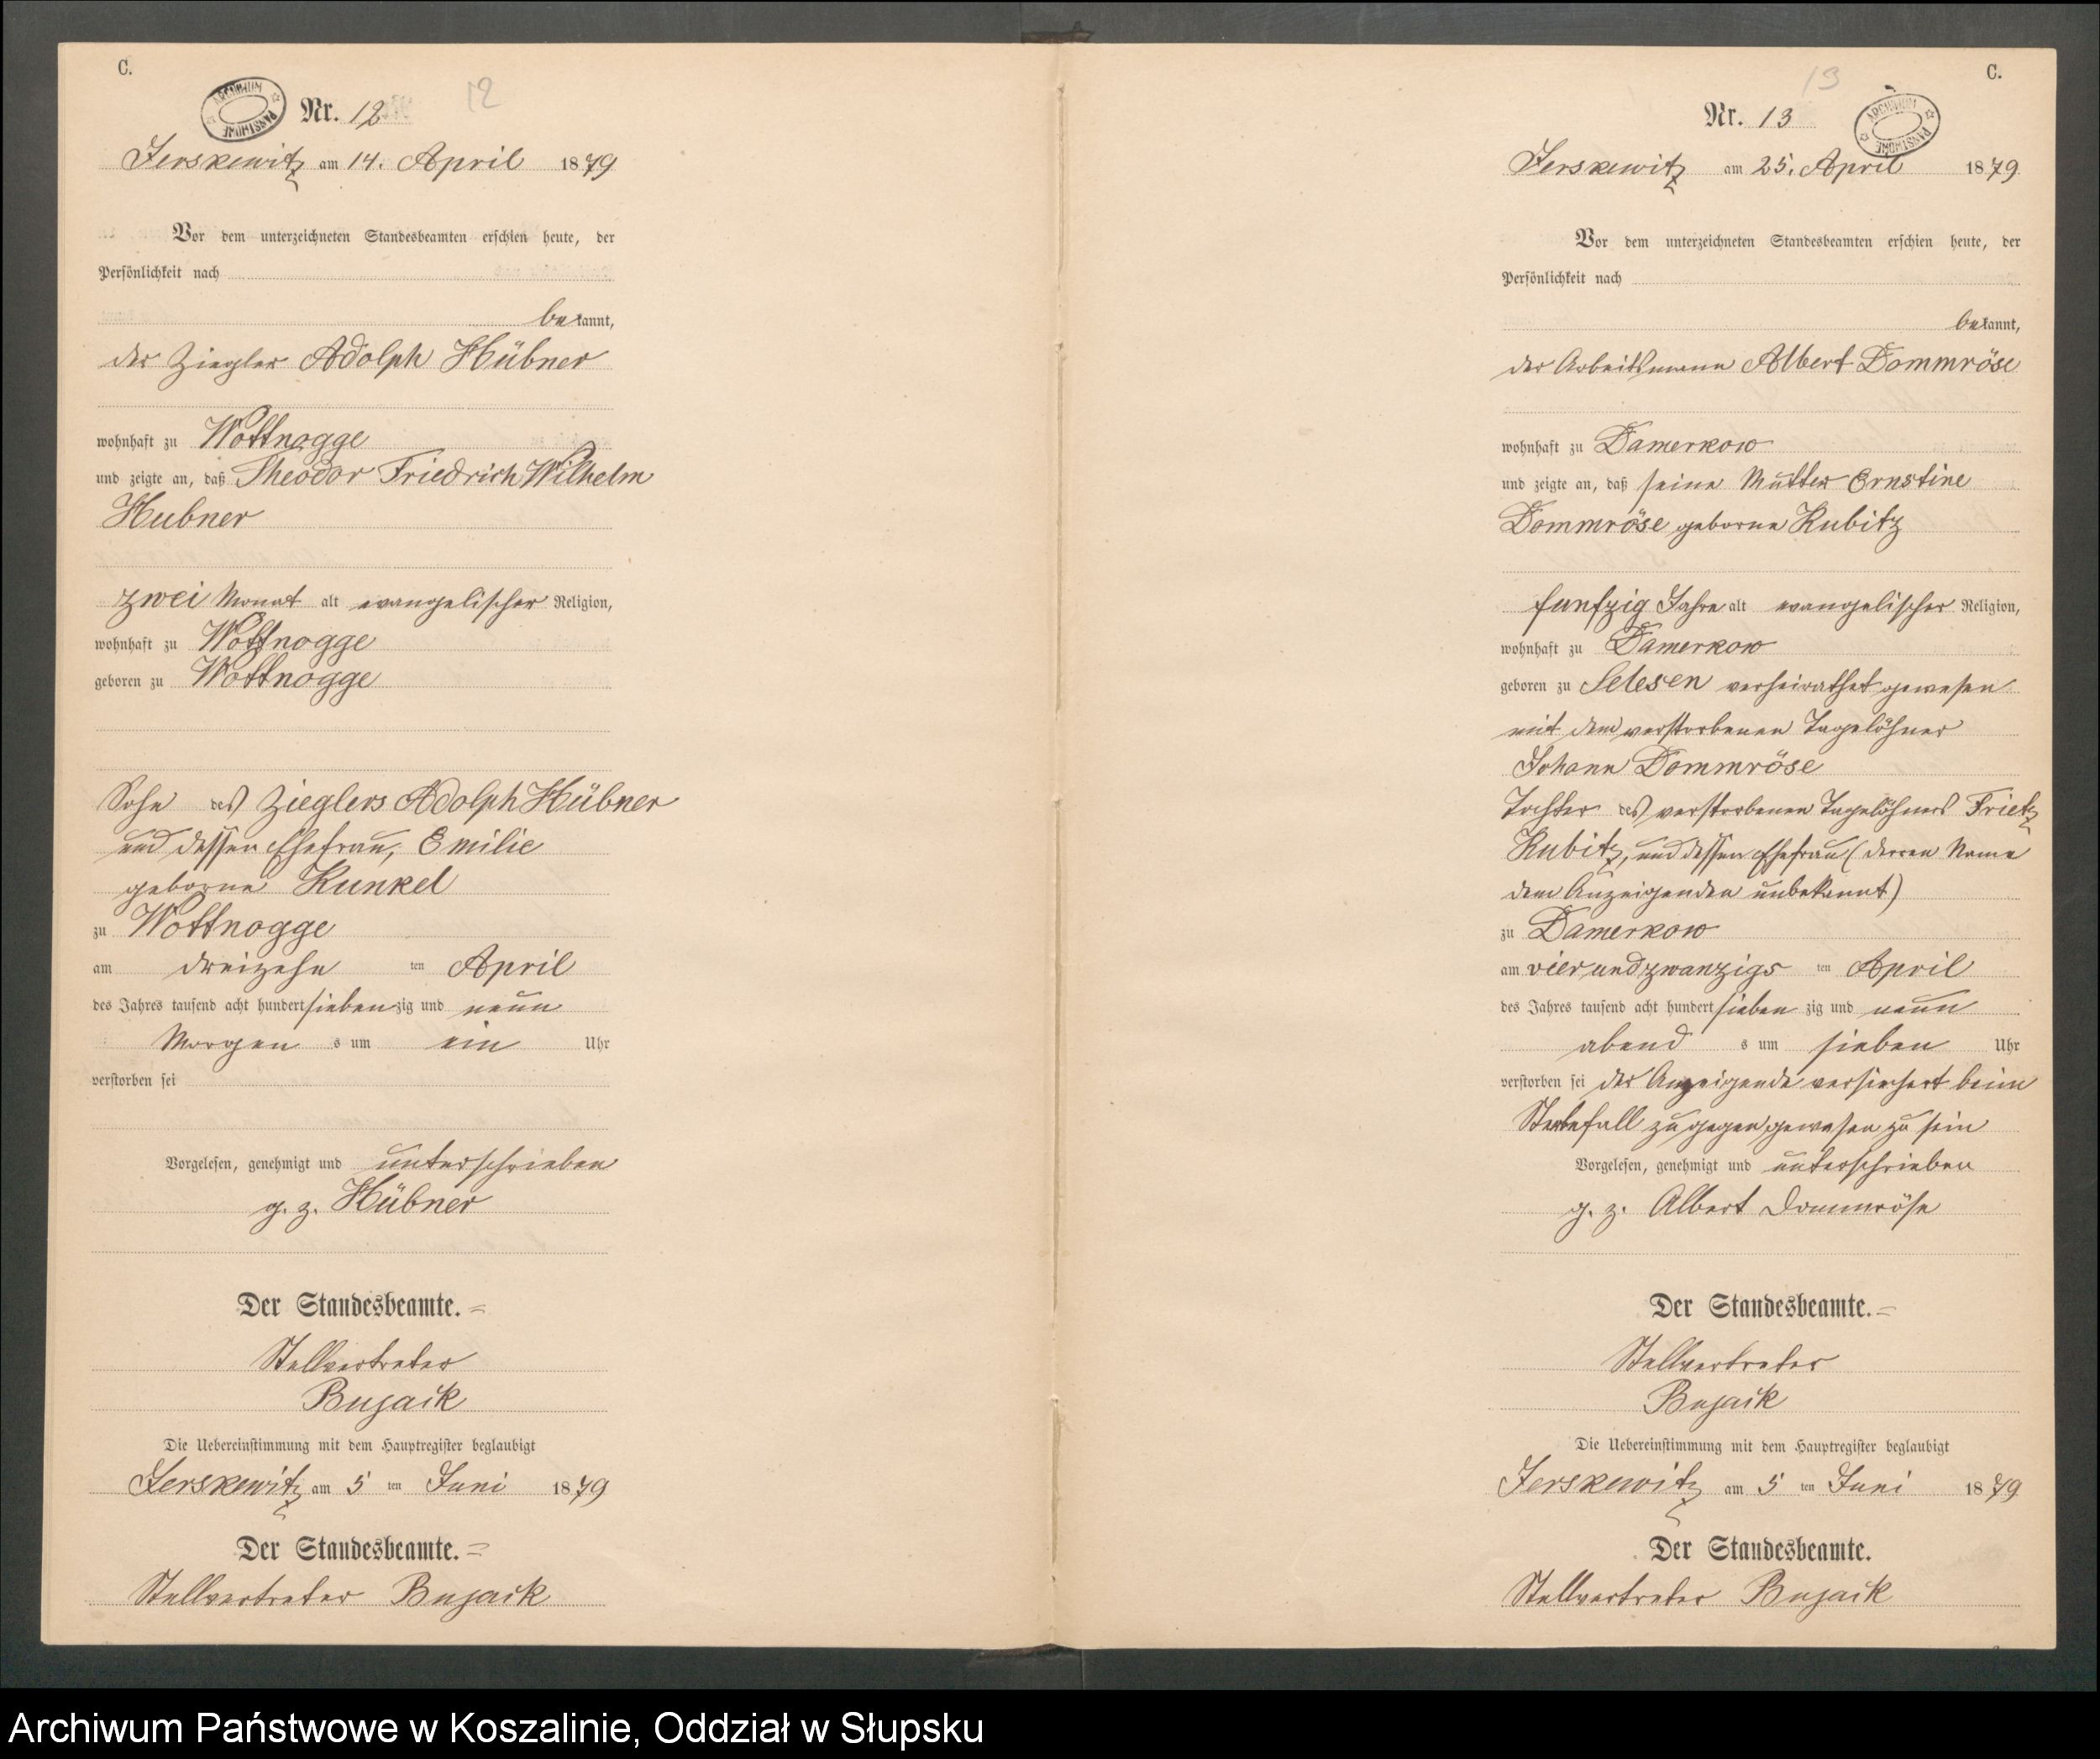 C.
ARCHIWUM PAŃSTWOWE
Nr. 12
12
Jerskewitz am 14. April 1879
Vor dem unterzeichneten Standesbeamten erschien heute, der
Persönlichkeit nach
bekannt,
der Ziegler Adolph Hübner
wohnhaft zu Wottnogge
und zeigte an, daß Theodor Friedrich Wilhelm
Hubner
zwei Monat alt evangelischer Religion,
wohnhaft zu Wottnogge
geboren zu Wottnogge
Sohn des Zieglers Adolph Hübner
und dessen Ehefrau, Emilie
geborne Kunkel
zu Wottnogge
am dreizehn ten April
des Jahres tausend acht hundert siebenzig und neun
Morgen s um ein Uhr
verstorben sei
Vorgelesen, genehmigt und unterschrieben
g. z. Hübner
Der Standesbeamte.
Stellvertreter
Bujack
Die Uebereinstimmung mit dem Hauptregister beglaubigt
Jerskewitz am 5 ten Juni 1879
Der Standesbeamte.
Stellvertreter Bujack
C.
13
Nr. 13
ARCHIWUM PAŃSTWOWE
Jerskewitz am 25. April 1879
Vor dem unterzeichneten Standesbeamten erschien heute, der
Persönlichkeit nach
bekannt,
der Arbeitsmann Albert Dommröse
wohnhaft zu Damerkow
und zeigte an, daß seine Mutter Ernstine
Dommröse geborne Kubitz
funfzig Jahre alt evangelischer Religion,
wohnhaft zu Damerkow
geboren zu Selesen verheirathet gewesen
mit dem verstorbenen Tagelöhner
Johann Dommröse
Tochter des verstorbenen Tagelöhners Frietz
Kubitz, und dessen Ehefrau (derren Name
dem Anzeigenden unbekannt)
zu Damerkow
am vierundzwanzigs ten April
des Jahres tausend acht hundert sieben zig und neun
abend s um sieben Uhr
verstorben sei der Anzeigende versichert beim
Sterbefall zugegen gewesen zu sein
Vorgelesen, genehmigt und unterschrieben
g. z. Albert Dommröse
Der Standesbeamte.
Stellvertreter
Bujack
Die Uebereinstimmung mit dem Hauptregister beglaubigt
Jerskewitz am 5 ten Juni 1879
Der Standesbeamte.
Stellvertreter Bujack
Archiwum Państwowe w Koszalinie, Oddział w Słupsku